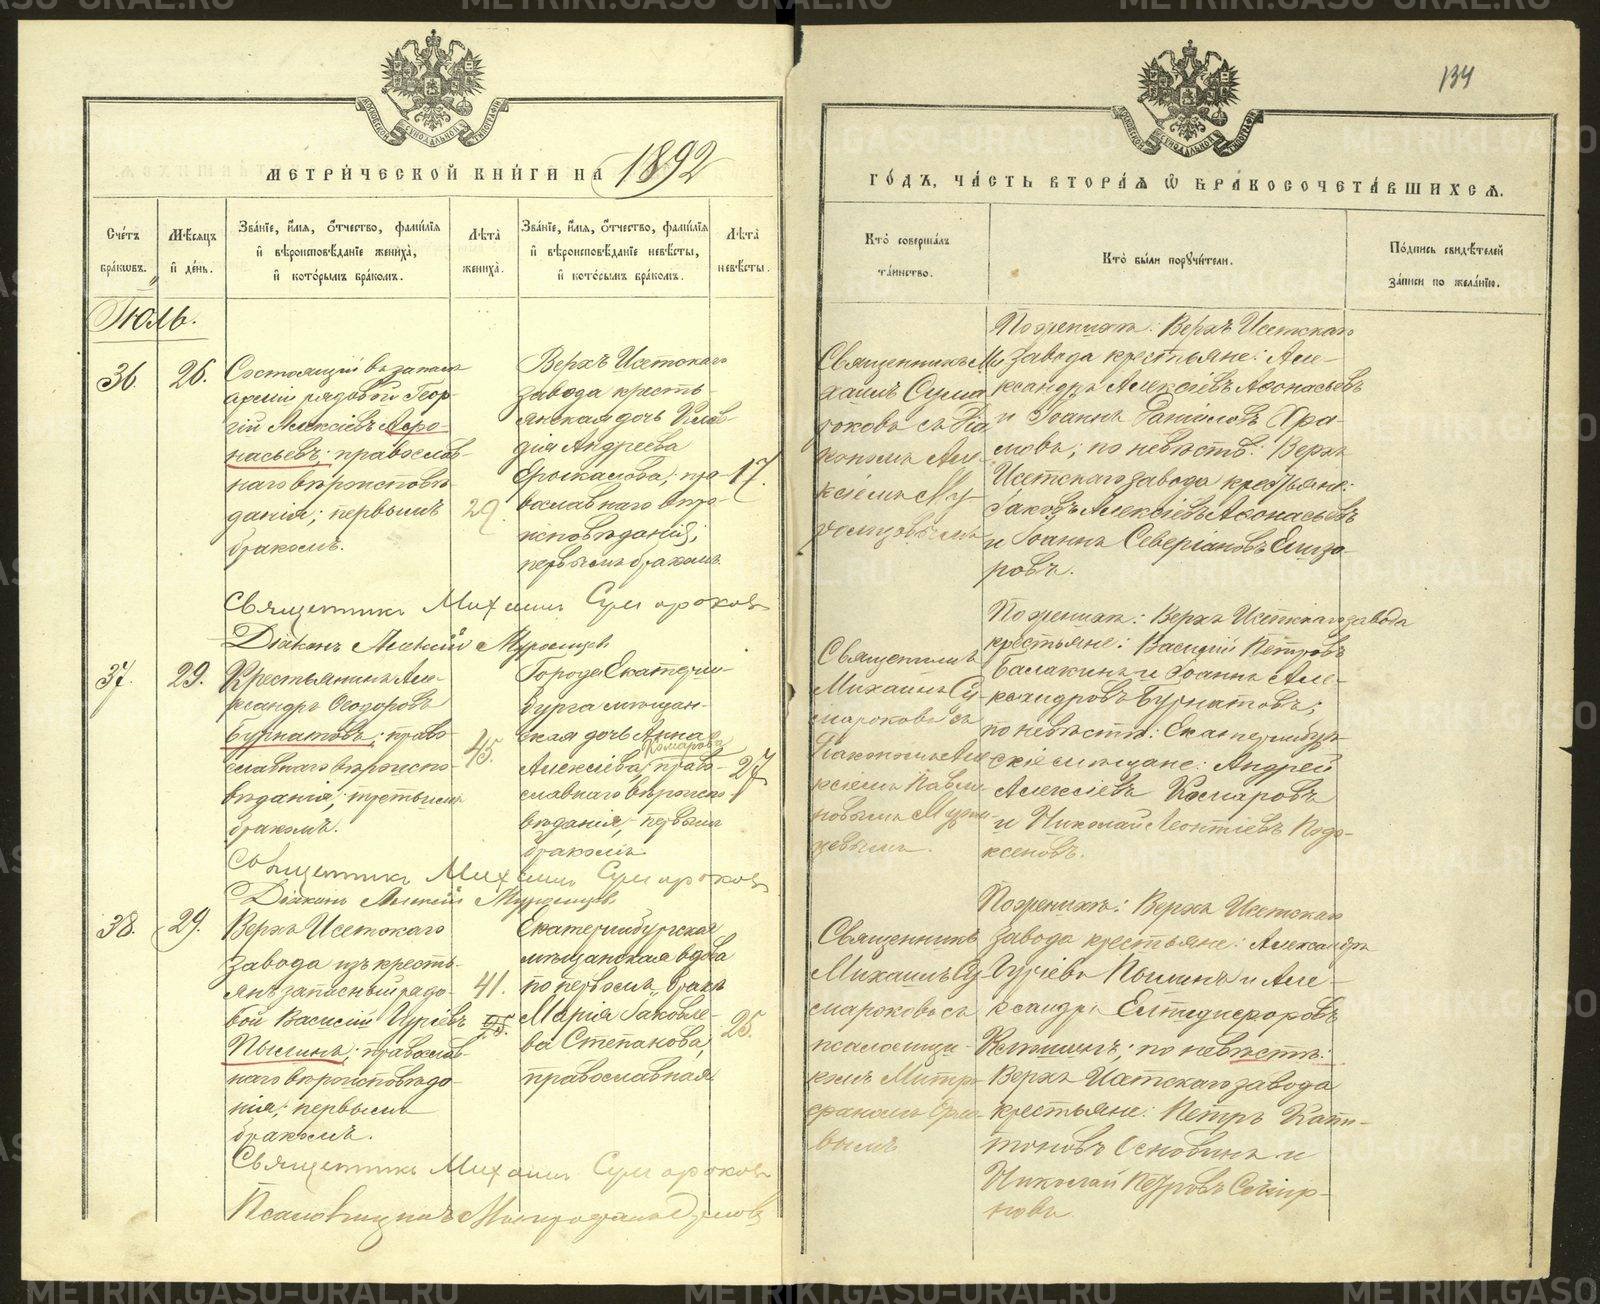 134
МЕТРИЧЕСКОЙ КНИГИ НА 1892
ГОДЪ, ЧАСТЬ ВТОРАЯ Ѡ БРАКОСОЧЕТАВШИХСЯ.
Счетъ браковъ.
Мѣсяцъ и день.
Званіе, имя, отчество, фамилія
и вѣроисповѣданіе жениха,
и которымъ бракомъ.
Лѣта
жениха.
Званіе, имя, отчество, фамилія
и вѣроисповѣданіе невѣсты,
и которымъ бракомъ.
Лѣта
невѣсты.
Кто совершалъ
таинство.
Кто были поручители.
Подпись свидѣтелей
записи по желанію.
Іюль.
36.
26.
Состоящій въ запасѣ
арміи рядовой Геор-
гій Алексіевъ Аѳо-
насьевъ; православ-
наго вѣроисповѣ-
данія; первымъ
бракомъ.
29.
Верхъ Исетскаго
завода кресть-
янская дочь Клав-
дія Андреева
православнаго вѣро-
исповѣданія;
первымъ бракомъ.
17.
Священникъ Ми-
хаилъ Сума-
роковъ съ Діа-
кономъ Але-
ксіемъ
По женихѣ: Верхъ Исетскаго
завода крестьяне: Але-
ксандръ Алексіевъ Аѳонасьевъ
и Іоаннъ Хра-
мовъ; по невѣстѣ: Верхъ
Исетскаго завода крестьяне:
Іаковъ Алексіевъ Аѳонасьевъ
и Іоаннъ Северіановъ Елиза-
ровъ.
Священникъ Михаилъ Сумароковъ
Діаконъ Алексій
37.
29.
Крестьянинъ Але-
ксандръ Ѳеодоровъ
Бурнатовъ; право-
славнаго вѣроиспо-
вѣданія; третьимъ
бракомъ.
45.
Города Екатерин-
бурга мѣщан-
ская дочь Анна
Комарова
Алексіева, право-
славнаго вѣроиспо-
вѣданія; первымъ
бракомъ
27
Священникъ
Михаилъ Су-
мароковъ съ
Діакономъ Але-
ксіемъ
По женихѣ: Верхъ Исетскаго завода
крестьяне: Василій Петровъ
Балакинъ и Іоаннъ Але-
ксандровъ Бурнатовъ;
по невѣстѣ: Екатеринбург-
скіе мѣщане: Андрей
Алексіевъ Комаровъ
и Николай Леонтіевъ Подо-
ксеновъ.
Священникъ Михаилъ Сумароковъ
Діаконъ Алексій
38.
29.
Верхъ Исетскаго
завода изъ кресть-
янъ запасный рядо-
вой Василій Гурьевъ
Пылинъ; православ-
наго вѣроисповѣда-
нія; первымъ
бракомъ.
41.
Екатеринбургская
мѣщанская вдова
по первомъ бракѣ
Марія Іаковле-
ва Степанова,
православная
25.
Священникъ
Михаилъ Су-
мароковъ съ
псаломщи-
комъ Митро-
фаномъ
По женихѣ: Верхъ Исетскаго
завода крестьяне: Александръ
Гурьевъ Пылинъ и Але-
ксандръ
по невѣстѣ:
Верхъ Исетскаго завода
крестьяне: Петръ Капи-
тоновъ Основинъ и
Николай Петровъ Смир-
новъ.
Священникъ Михаилъ Сумароковъ
Псаломщикъ Митрофанъ